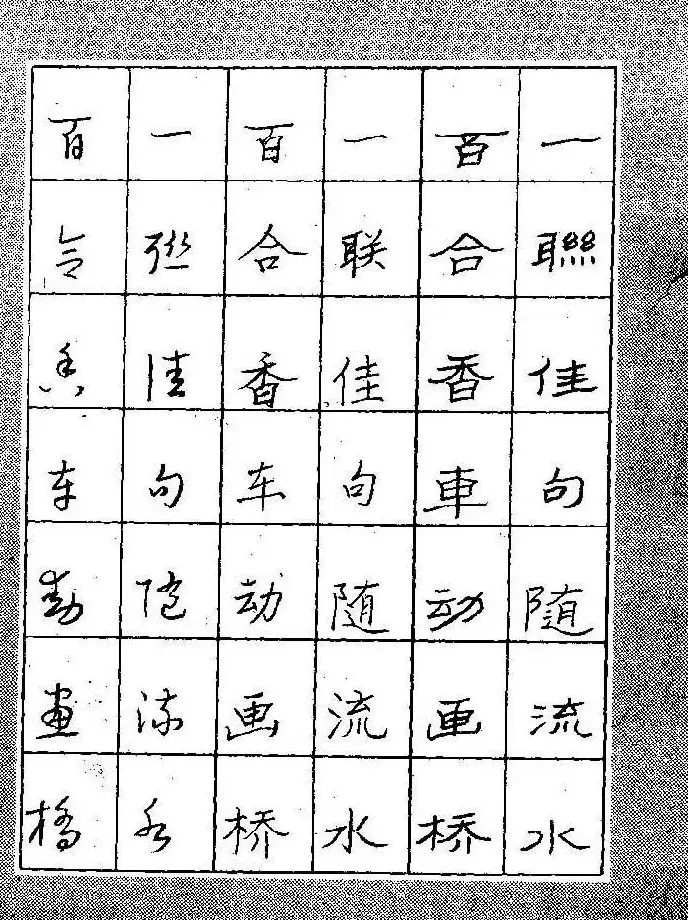 一聯佳句随流水
百合香車动画桥
一联佳句随流水
百合香车动画桥
一聯佳句随流水
百合香车動畫橋